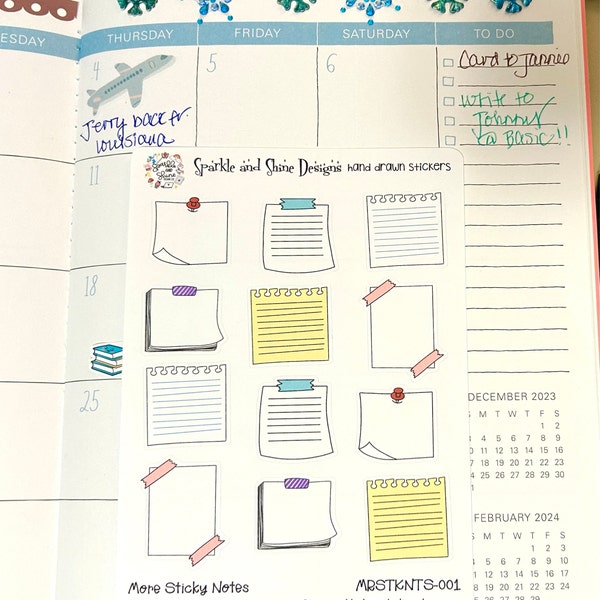 ESDAY THURSDAY FRIDAY SATURDAY TO DO
4 5 6
Card to Jannie
Jerry back fr.
Louisiana
write to
Johnny
@ Basic!!
11
18
25
Sparkle and Shine Designs hand drawn stickers
DECEMBER 2023
S M T W T F S
1 2
3 4 5 6 7 8 9
10 11 12 13 14 15 16
17 18 19 20 21 22 23
24 25 26 27 28 29 30
31
FEBRUARY 2024
S M T W T F S
1 2 3
4 5 6 7 8 9 10
11 12 13 14 15 16 17
18 19 20 21 22 23 24
25 26 27 28 29
More Sticky Notes MRSTKNTS-001